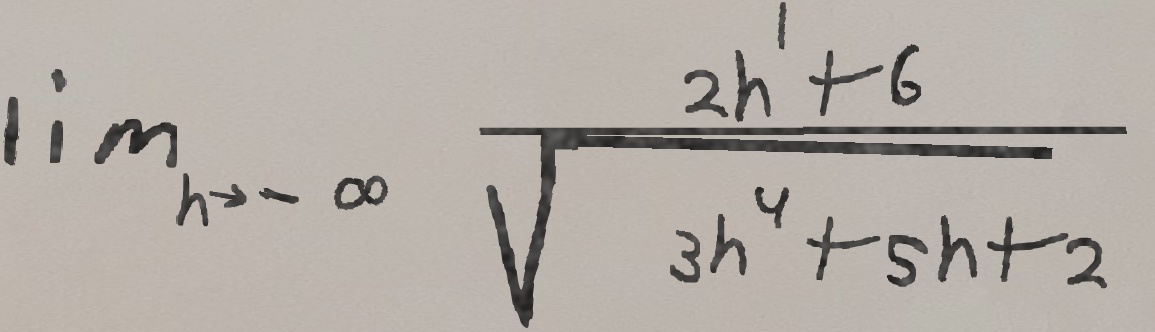 lim_{h→-∞} \frac{2h^1+6}{\sqrt{3h^4+5h+2}}